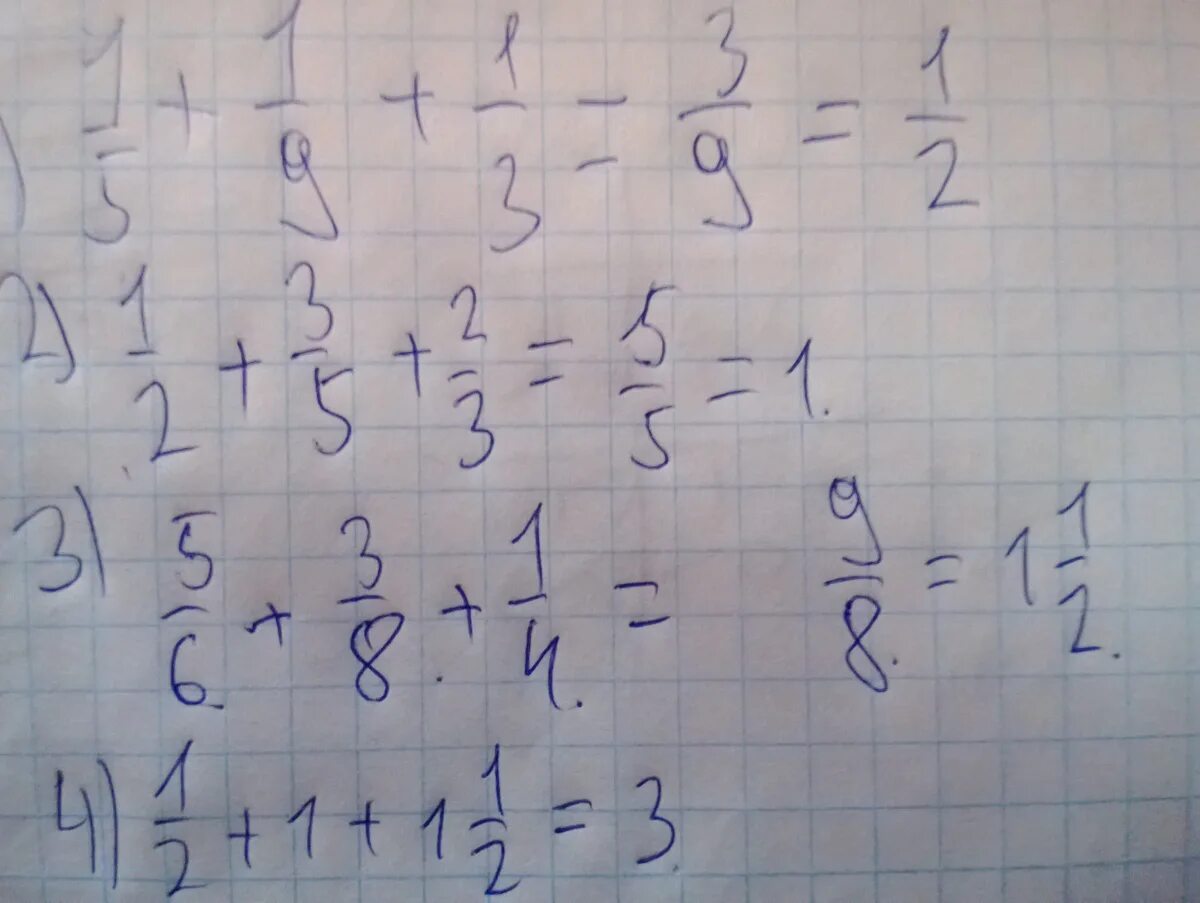 ) 1/5 + 1/9 + 1/3 = 3/9 = 1/2
2) 1/2 + 3/5 + 2/3 = 5/5 = 1.
3) 5/6 + 3/8. + 1/4. = 9/8. = 1 1/2.
4) 1/2 + 1 + 1 1/2 = 3.